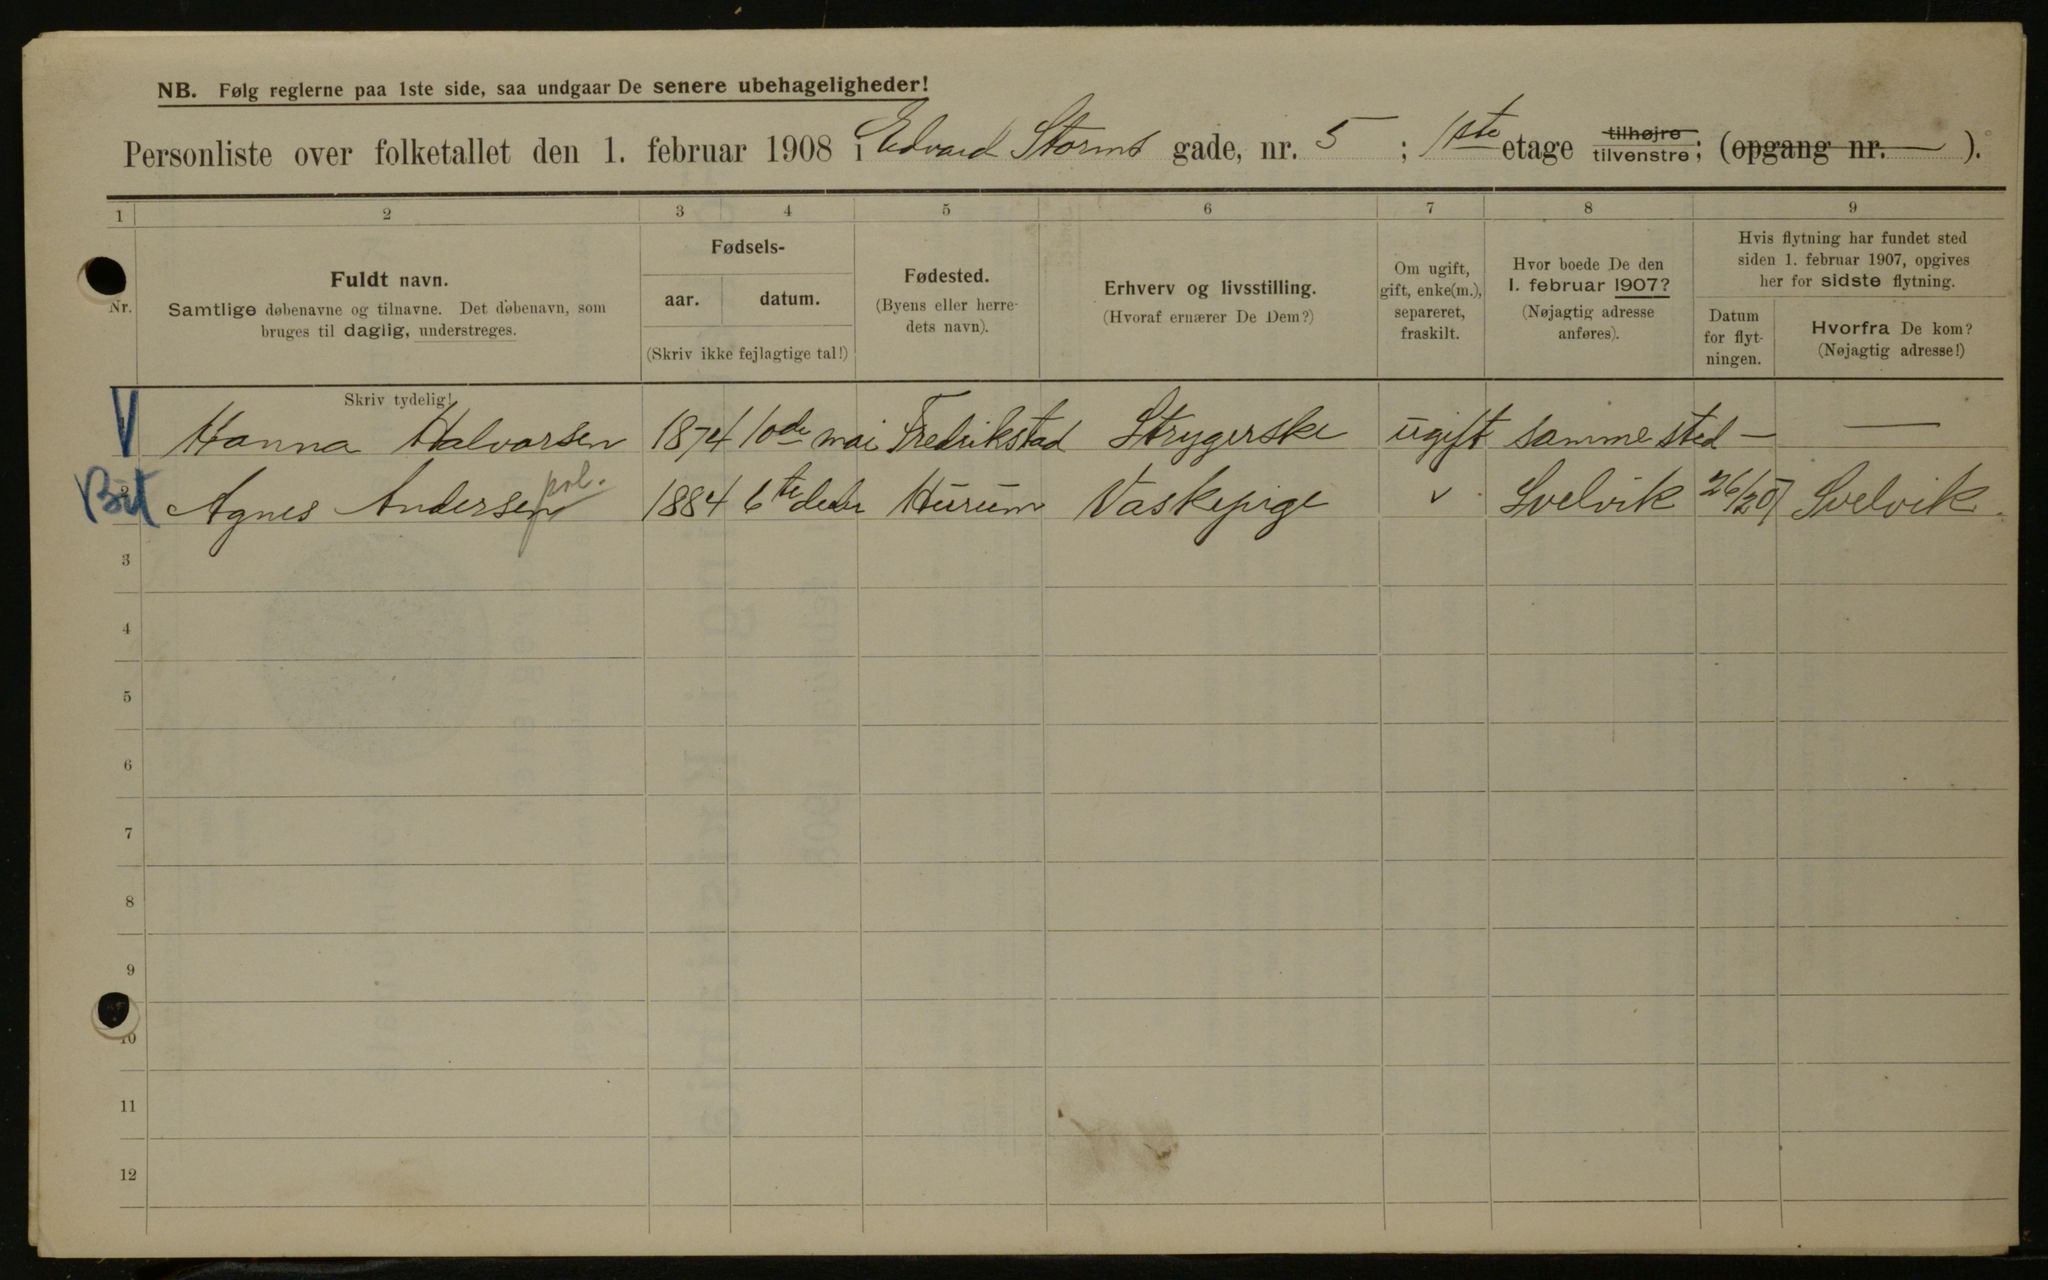 NB. Følg reglerne paa 1ste side, saa undgaar De senere ubehageligheder!
Personliste over folketallet den 1. februar 1908 i Edvard Storms gade, nr. 5 ; 1ste etage tilhøjre tilvenstre; (opgang nr. — ).
1 2 3 4 5 6 7 8 9
Nr.
Fuldt navn.
Samtlige døbenavne og tilnavne. Det døbenavn, som
bruges til daglig, understreges.
Fødsels-
aar. datum.
(Skriv ikke fejlagtige tal!)
Fødested.
(Byens eller herre-
dets navn).
Erhverv og livsstilling.
(Hvoraf ernærer De Dem?)
Om ugift,
gift, enke(m.),
separeret,
fraskilt.
Hvor boede De den
1. februar 1907?
(Nøjagtig adresse
anføres).
Hvis flytning har fundet sted
siden 1. februar 1907, opgives
her for sidste flytning.
Datum
for flyt-
ningen.
Hvorfra De kom?
(Nøjagtig adresse!)
Skriv tydelig!
V Hanna Halvorsen 1874 10de mai Fredrikstad Strygerske ugift samme sted — —
pol.
Bit 2 Agnes Andersen 1884 6te decbr Hurum Vaskepige v Svelvik Svelvik.
3
4
5
6
7
8
9
10
11
12